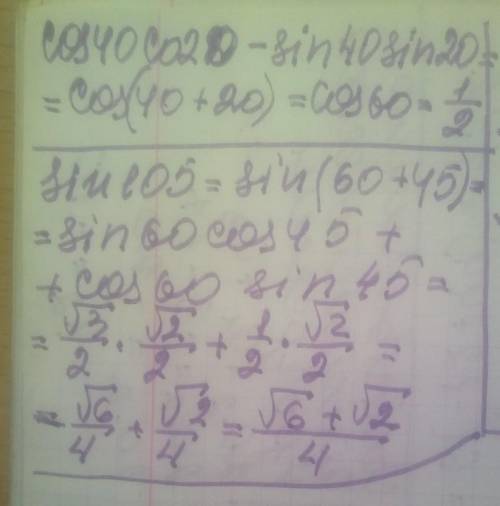 cos40 co20 - sin40sin20=
= cos(40+20) = cos60 = 1/2
sin105 = sin(60+45)=
= sin60 cos45 +
+ cos60 sin45 =
= √3/2 · √2/2 + 1/2 · √2/2 =
= √6/4 + √2/4 = (√6+√2)/4